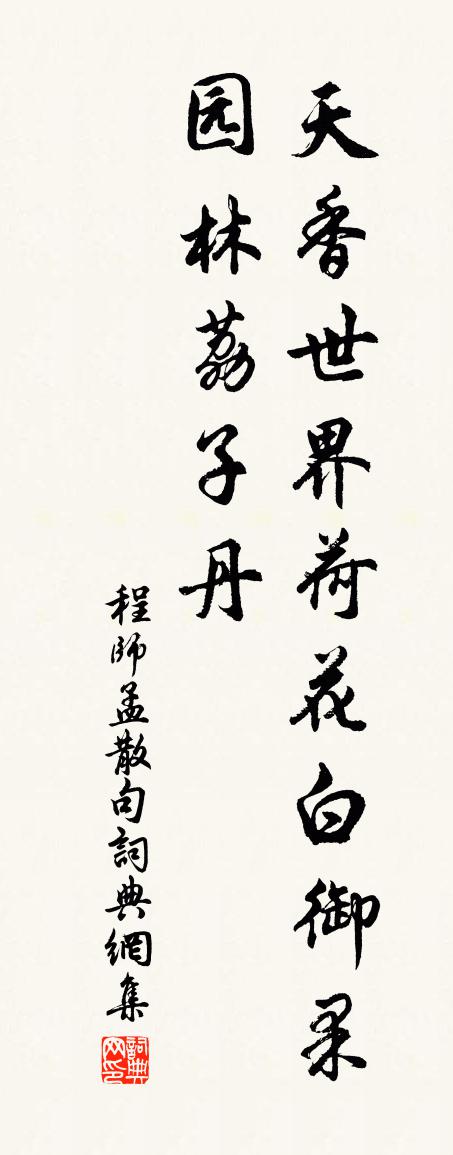 天香世界荷花白御果
园林荔子丹
程師孟散句詞典網集
詞典网印